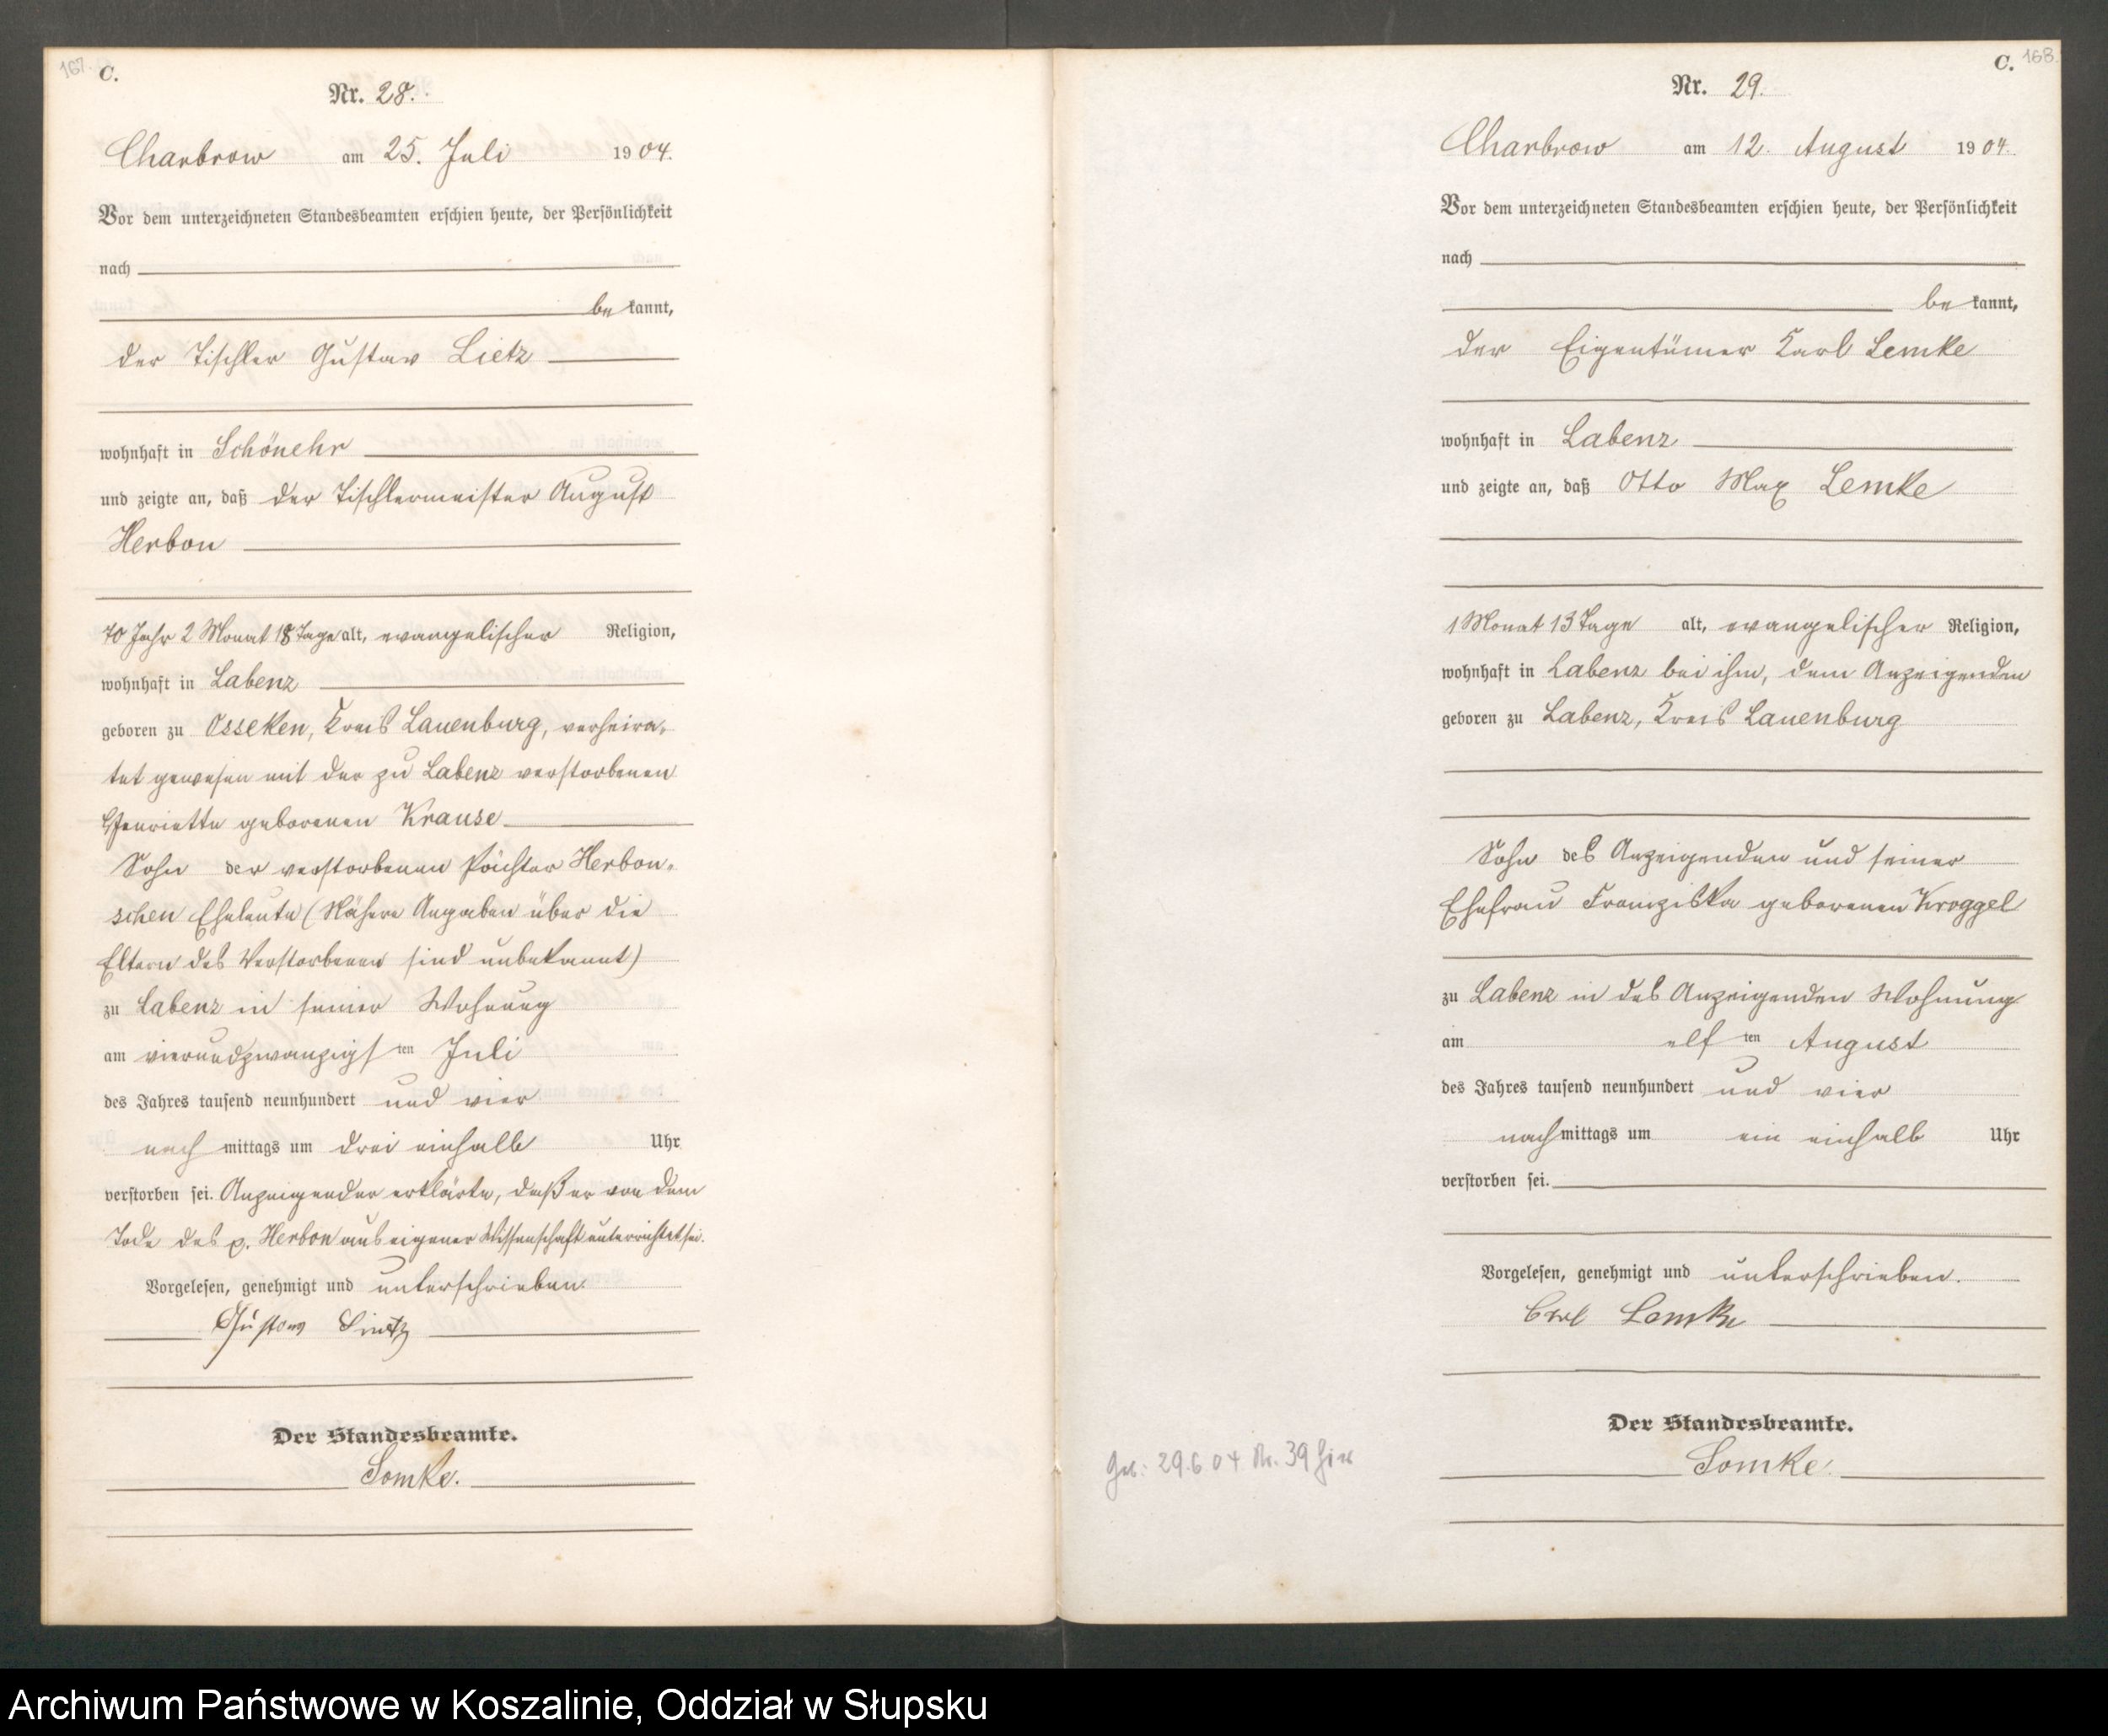 167.
C.
Nr. 28.
Charbrow am 25. Juli 1904.
Vor dem unterzeichneten Standesbeamten erschien heute, der Persönlichkeit
nach
be kannt,
der Tischler Gustav Lietz
wohnhaft in Schönehr
und zeigte an, daß der Tischlermeister August
Herbon
70 Jahr 2 Monat 18 Tage alt, evangelischer Religion,
wohnhaft in Labenz
geboren zu Osseken, Kreis Lauenburg, verheira-
tet gewesen mit der zu Labenz verstorbenen
Henriette geborenen Krause
Sohn der verstorbenen Pächter Herbon-
schen Eheleute (Nähere Angaben über die
Eltern des Verstorbenen sind unbekannt)
zu Labenz in seiner Wohnung
am vierundzwanzigsten Juli
des Jahres tausend neunhundert und vier
nach mittags um drei einhalb Uhr
verstorben sei. Anzeigender erklärte, daß er von dem
Tode des p. Herbon aus eigener Wissenschaft unterrichtet sei.
Vorgelesen, genehmigt und unterschrieben.
Gustav Lietz
Der Standesbeamte.
Lemke.
C. 168.
Nr. 29.
Charbrow am 12. August 1904.
Vor dem unterzeichneten Standesbeamten erschien heute, der Persönlichkeit
nach
be kannt,
der Eigentümer Karl Lemke
wohnhaft in Labenz
und zeigte an, daß Otto Max Lemke
1 Monat 13 Tage alt, evangelischer Religion,
wohnhaft in Labenz bei ihm, dem Anzeigenden
geboren zu Labenz, Kreis Lauenburg
Sohn des Anzeigenden und seiner
Ehefrau Franziska geborenen Kroggel
zu Labenz in des Anzeigenden Wohnung
am elften August
des Jahres tausend neunhundert und vier
nachmittags um ein einhalb Uhr
verstorben sei.
Vorgelesen, genehmigt und unterschrieben.
Carl Lemke
Der Standesbeamte.
Lemke.
Geb: 29.6.04 Nr. 39 hier
Archiwum Państwowe w Koszalinie, Oddział w Słupsku